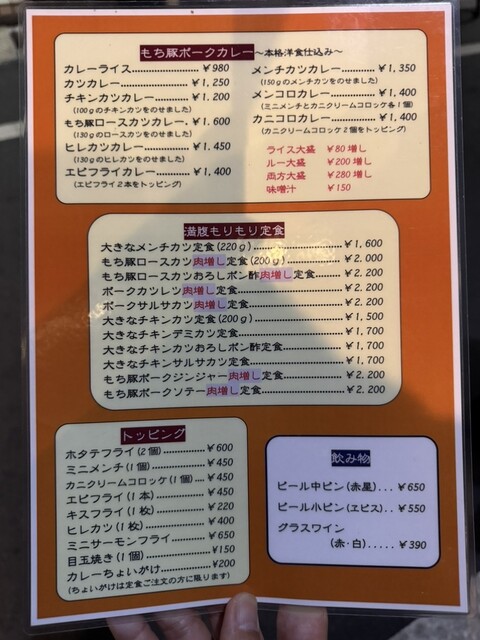 もち豚ポークカレー～本格洋食仕込み～
カレーライス……………¥980
カツカレー……………¥1,250
チキンカツカレー……………¥1.200
(100gのチキンカツをのせました)
もち豚ロースカツカレー.¥1.600
(130gのロースカツをのせました)
ヒレカツカレー……………¥1.450
(130gのヒレカツをのせました)
エビフライカレー……………¥1,400
(エビフライ2本をトッピング)
メンチカツカレー……………¥1,350
(150gのメンチカツをのせました)
メンコロカレー……………¥1,400
(ミニメンチとカニクリームコロッケ各1個)
カニコロカレー……………¥1,400
(カニクリームコロッケ2個をトッピング)
ライス大盛 ¥80増し
ルー大盛 ¥200増し
両方大盛 ¥280増し
味噌汁 ¥150
満腹もりもり定食
大きなメンチカツ定食(220g)……………¥1,600
もち豚ロースカツ肉増し定食(200g)……………¥2.000
もち豚ロースカツおろしポン酢肉増し定食……………¥2.200
ポークカツレツ肉増し定食……………¥2.200
ポークサルサカツ肉増し定食……………¥2.200
大きなチキンカツ定食(200g)……………¥1,500
大きなチキンデミカツ定食……………¥1,700
大きなチキンカツおろしポン酢定食……………¥1,700
大きなチキンサルサカツ定食……………¥1,700
もち豚ポークジンジャー肉増し定食……………¥2.200
もち豚ポークソテー肉増し定食……………¥2.200
トッピング
ホタテフライ(2個)……………¥600
ミニメンチ(1個)……………¥450
カニクリームコロッケ(1個)….¥450
エビフライ(1本)……………¥450
キスフライ(1枚)……………¥220
ヒレカツ(1枚)……………¥400
ミニサーモンフライ……………¥650
目玉焼き(1個)……………¥150
カレーちょいがけ……………¥200
(ちょいがけは定食ご注文の方に限ります)
飲み物
ビール中ビン(赤星)...¥650
ビール小ビン(ヱビス)..¥550
グラスワイン
(赤・白).....¥390